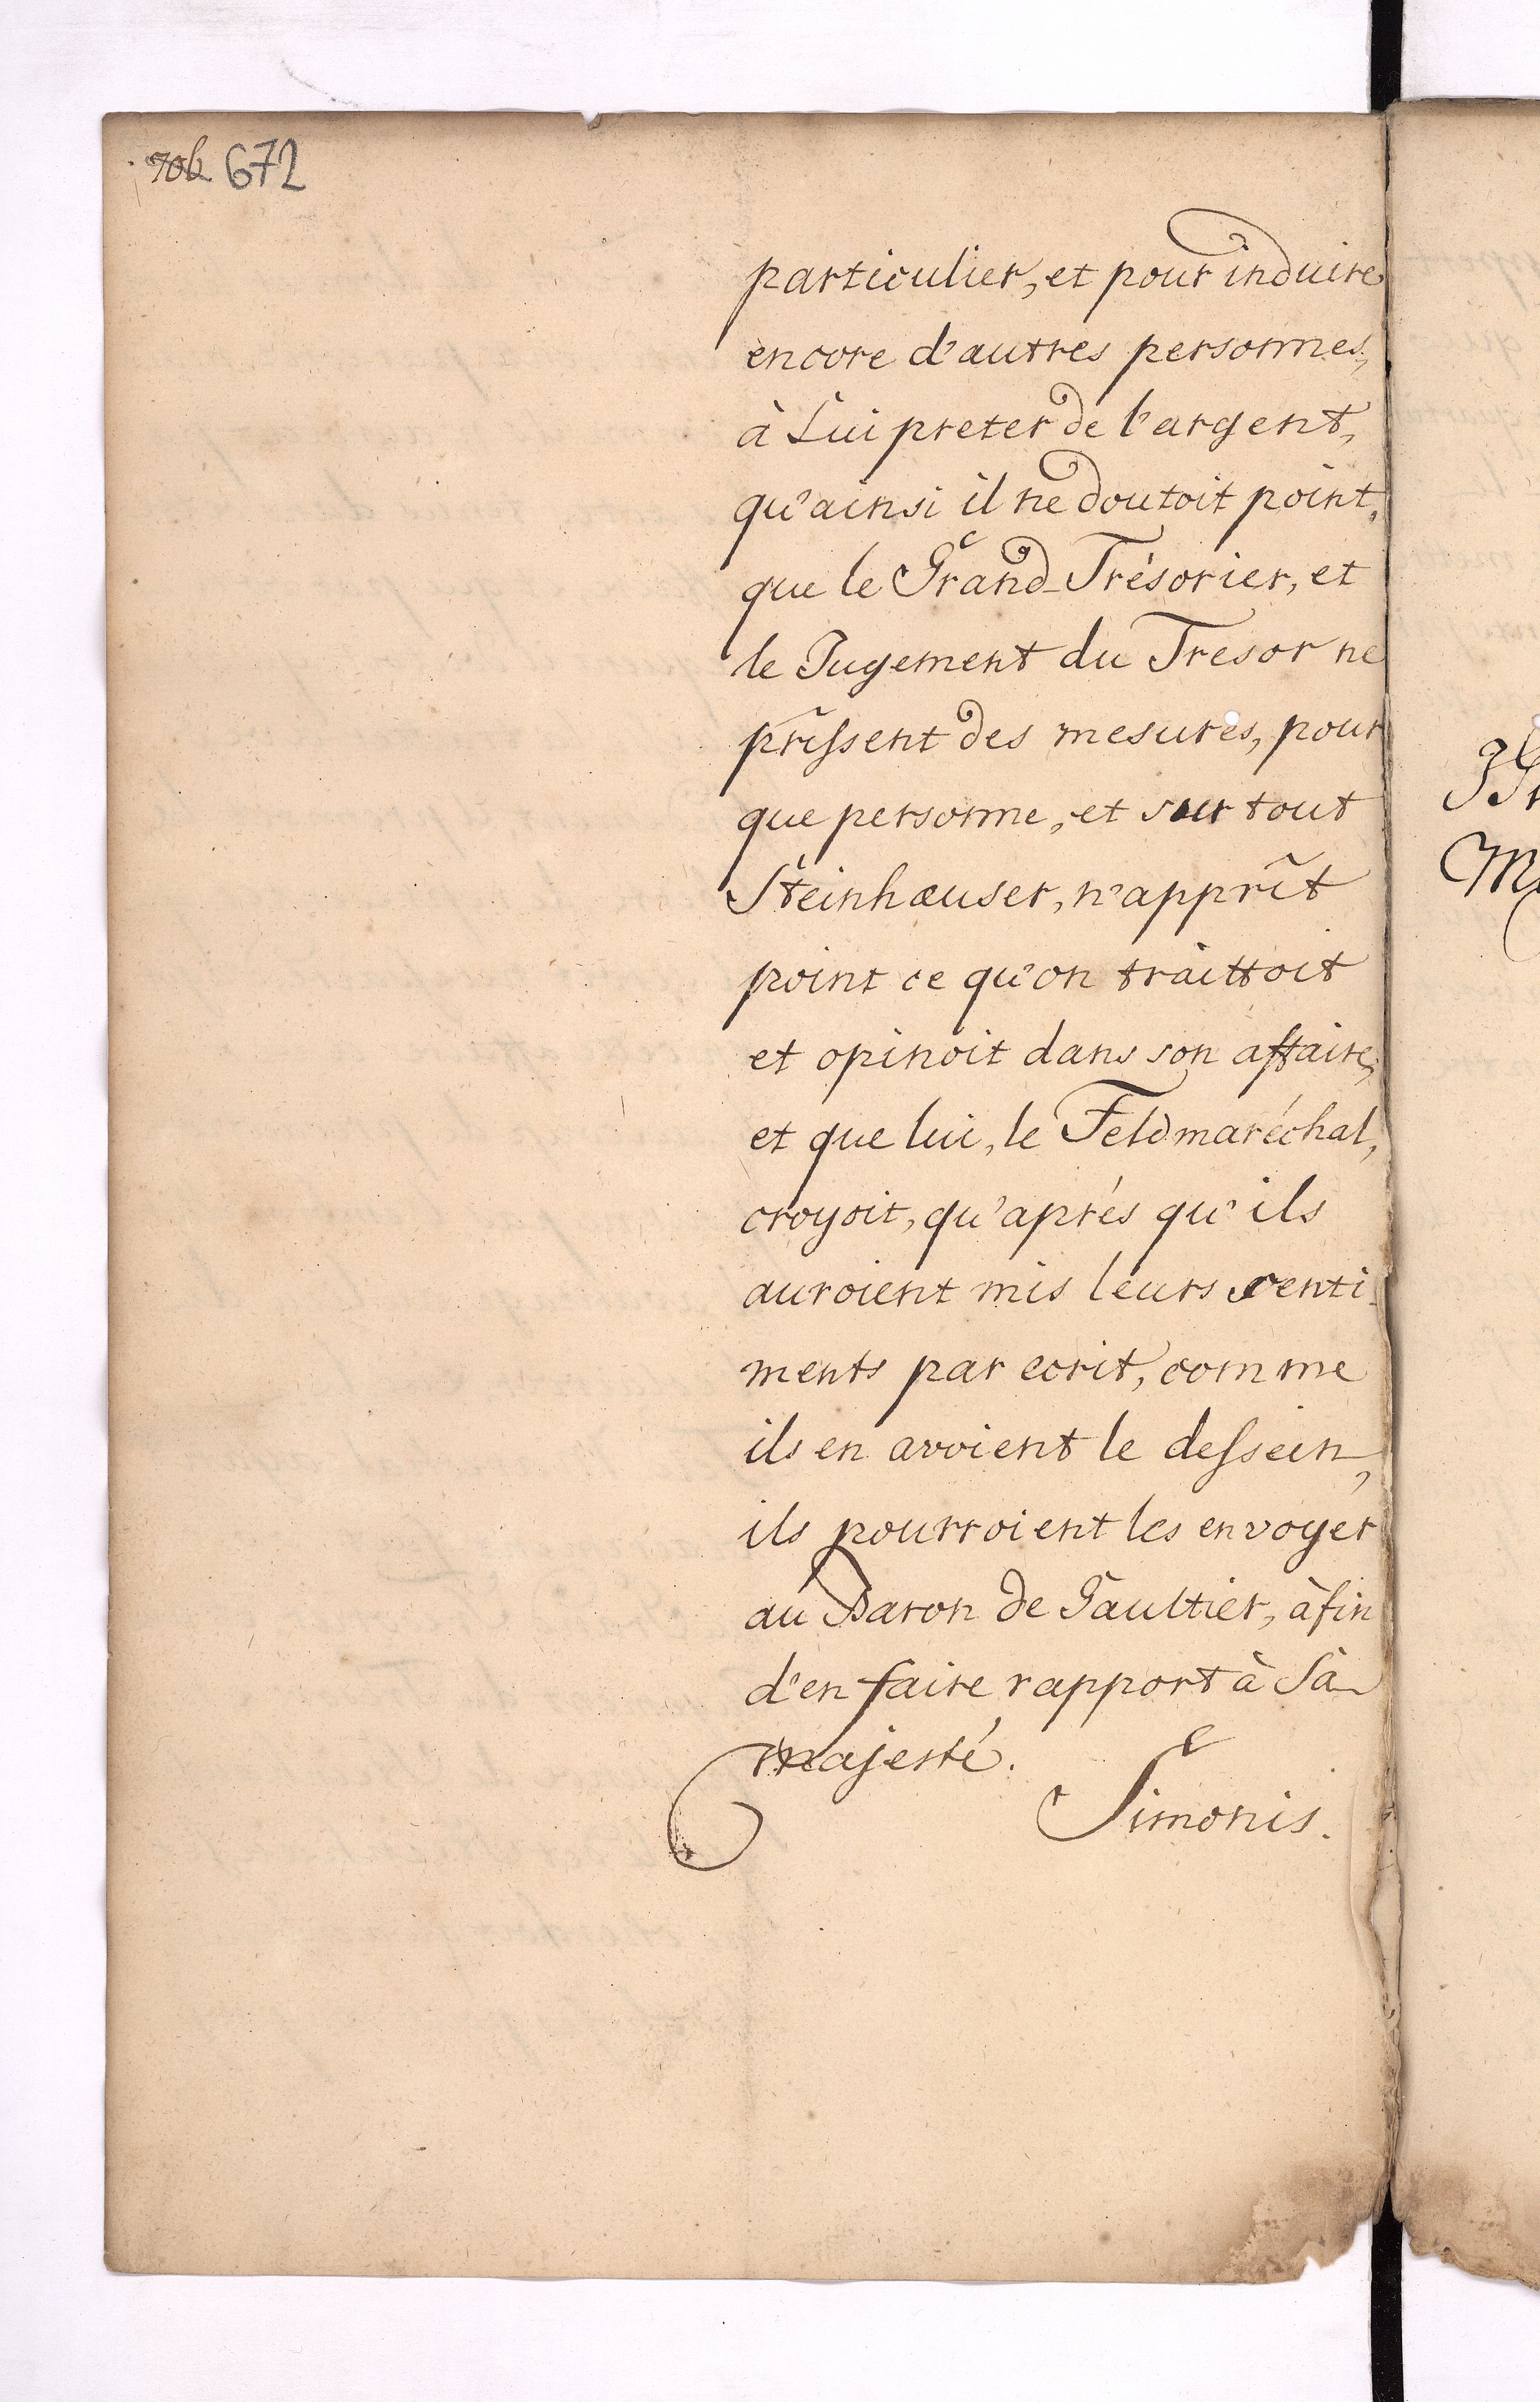 672
particulier, et pour induire
encore d'autres personnes,
à Lui preter de l'argent,
qu'ainsi il ne doutoit point,
que le Grand-Trésorier, et
le Jugement du Tresor ne
prîssent des mesures, pour
que personne, et sur tout
Steinhæuser, n'apprît
point ce qu'on traittoit
et opinoit dans son affaire,
et que lui, le Feldmaréchal,
croyoit, qu'aprés qu'ils
auroient mis leurs senti-
ments par ecrit, comme
ils en avoient le dessein,
ils pourroient les envoyer
au Baron de Gaultier, àfin
d'en faire rapport à Sa
majesté.
Simonis.